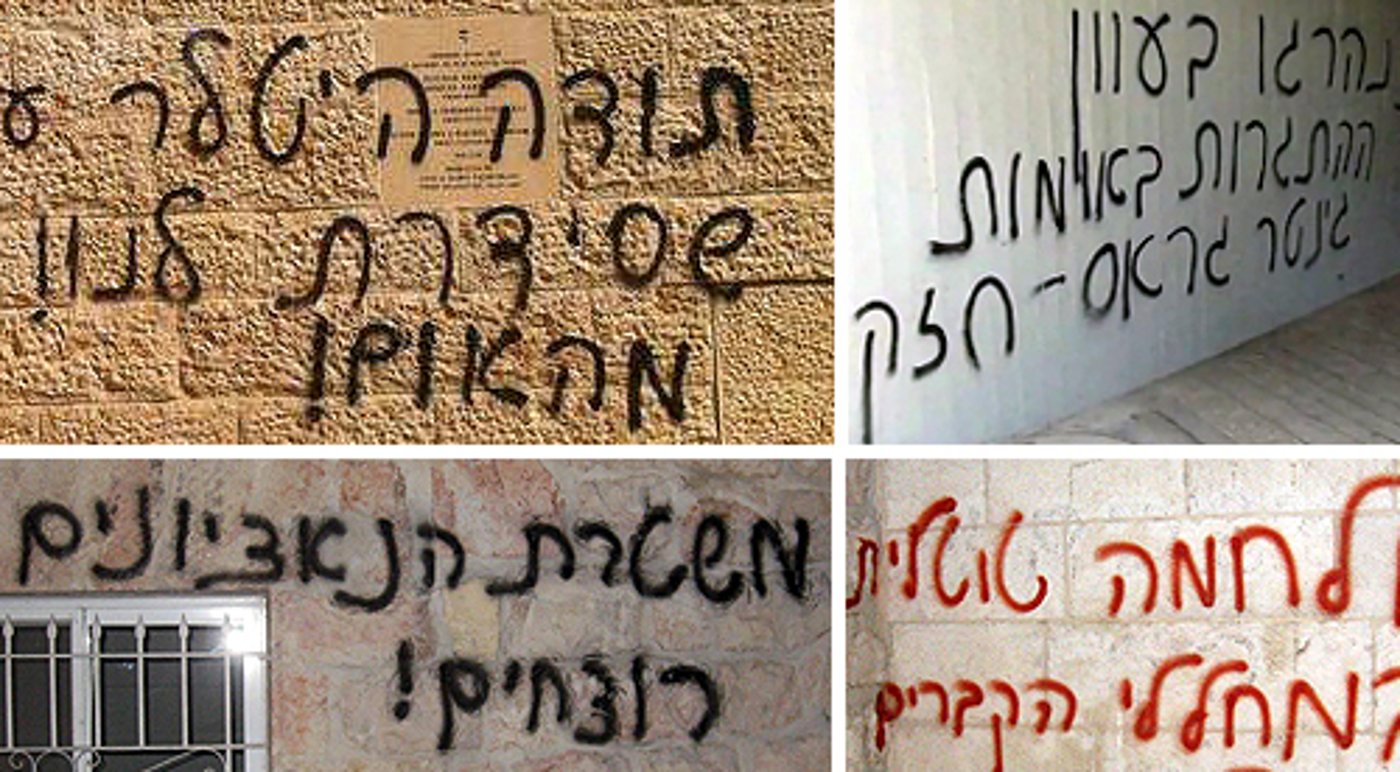 תודה היטלר ע
שסידרת לנו!
מהאום!
נהרגו בעוון
ההתגרות באומות
גינטר גראס - חזק
משטרת הנאציונים
רוצחים!
לחמה טוטלית
מחללי הקברים